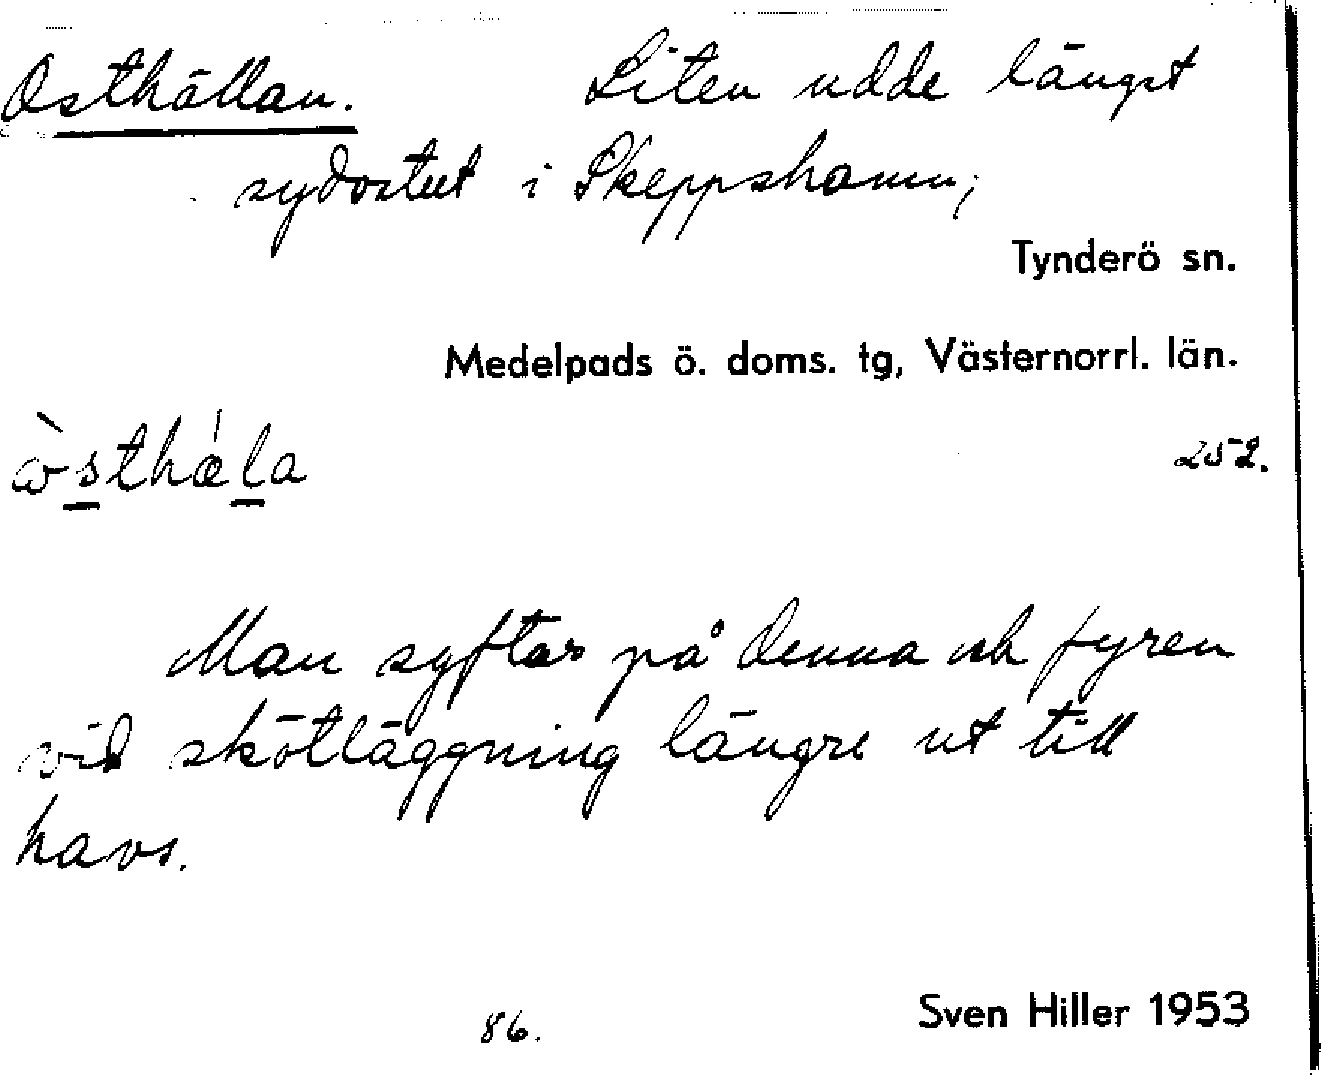 Osthällan. Liten udde längst
sydostut i Skeppshamn;
Tynderö sn.
Medelpads ö. doms. tg, Västernorrl. län.
ὼsthǽla 252.
Man syftar på denna och fyren
vid skötläggning längre ut till
havs.
86. Sven Hiller 1953